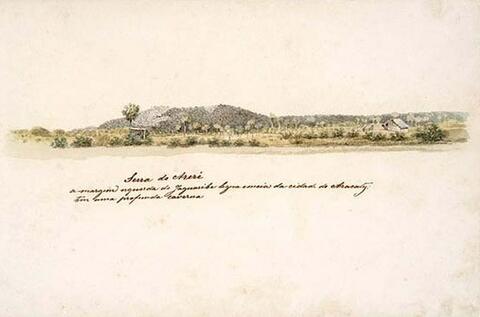 Serra do Areré
a margem esquerda do Jaguaribe legua emeia da cidad. do Aracaty.
tem uma profunda caverna